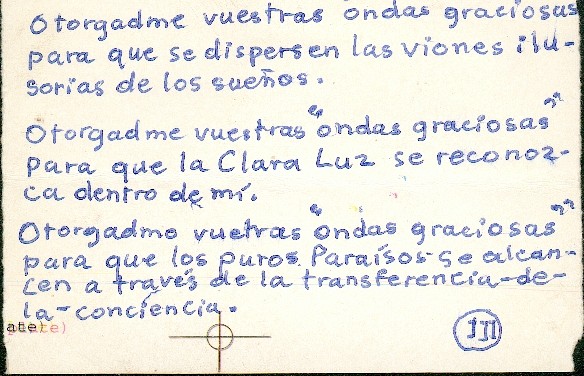 Otorgadme vuestras ondas graciosas
para que se dispersen las viones ilu-
sorias de los sueños.
Otorgadme vuestras "ondas graciosas"
para que la Clara Luz se reconoz-
ca dentro de mí.
Otorgadme vuetras "ondas graciosas"
para que los puros Paraísos se alcan-
cen a través de la transferencia-de-
la-conciencia.
ate)
III